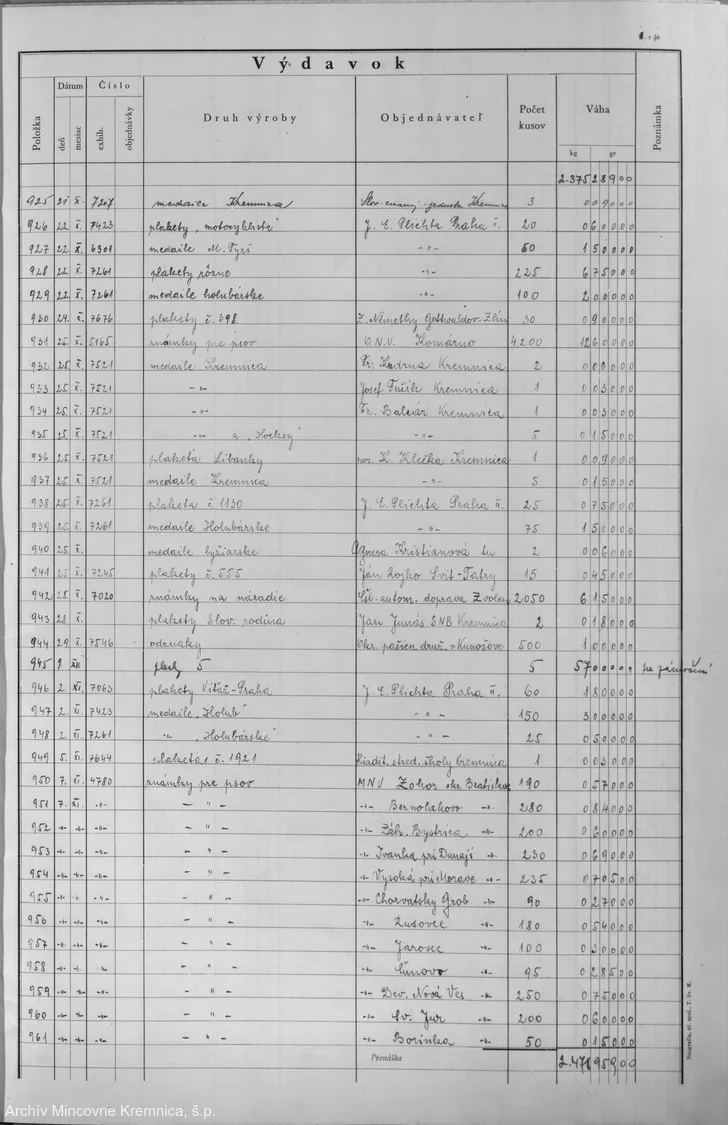 Výdavok
Položka | Dátum deň mesiac | Číslo exhib. objednávky | Druh výroby | Objednávateľ | Počet kusov | Váha kg gr | Poznámka
2.375 2 8 9 0 0
925 21 X. 7207 medaile Kremnica 3 0 0 9 0 0 0
926 22. X. 7423 plakety „motocyklista" J. E. Plichta Praha II. 20 0 6 0 0 0 0
927 22. X. 6301 medaile M. Tyrš -„- 50 1 5 0 0 0 0
928 22. X. 7261 plakety rôzne -„- 225 6 7 5 0 0 0
929 22. X. 7261 medaile holubárske -„- 100 2 0 0 0 0 0
930 24. X. 7676 plakety č. 398 Z. Némethy Gottwaldov-Zlín 30 0 9 0 0 0 0
931 25. X. 5165 známky pre psov O.N.V. Komárno 4.200 12 6 0 0 0 0
932 25. X. 7521 medaile Kremnica Fr. Kudrna Kremnica 2 0 0 6 0 0 0
933 25. X. 7521 -„- Josef Kremnica 1 0 0 3 0 0 0
934 25. X. 7521 -„- Fr. Balcár Kremnica 1 0 0 3 0 0 0
935 25. X. 7521 -„- a „Hockey" -„- 5 0 1 5 0 0 0
936 25. X. 7521 plaketa Libanky por. K. Klečka Kremnica 1 0 0 9 0 0 0
937 25. X. 7521 medaile Kremnica -„- 5 0 1 5 0 0 0
938 25. X. 7261 plaketa č. 1130 J. E. Plichta Praha II. 25 0 7 5 0 0 0
939 25. X. 7261 medaile Holubárske -„- 75 1 5 0 0 0 0
940 25. X. medaile lyžiarske Agnesa Kristianová tu 2 0 0 6 0 0 0
941 25 X. 7245 plakety č. 555 Ján Rojko Svit-Tatry 15 0 4 5 0 0 0
942 25. X. 7020 známky na náradie Čsl. autom. doprava Zvolen 2.050 6 1 5 0 0 0
943 28. X. plakety Slov. rodina Jan Junás SNB Kremnica 2 0 1 8 0 0 0
944 29. X. 7546 odznaky Okr. pašien. druž. v Kunošove 500 1 0 0 0 0 0
945 5 5 57 0 0 0 0 0
946 2. XI. 7063 plakety Víťaz-Praha J. E. Plichta Praha II. 60 1 8 0 0 0 0
947 2. XI. 7423 medaile „Holub" -„- 150 3 0 0 0 0 0
948 2. XI. 7261 -„- „Holubárske" -„- 25 0 5 0 0 0 0
949 5. XI. 7644 plaketa č. 1921 Riadit. stred. školy Kremnica 1 0 0 3 0 0 0
950 7. XI. 4780 známky pre psov MNV Zohor okr. Bratislava 190 0 5 7 0 0 0
951 7. XI. -„- -„- -„- Bernolakovo -„- 280 0 8 4 0 0 0
952 -„- -„- -„- -„- -„- Záh. Bystrica -„- 200 0 6 0 0 0 0
953 -„- -„- -„- -„- -„- Ivanka pri Dunaji -„- 230 0 6 9 0 0 0
954 -„- -„- -„- -„- -„- Vysoká pri Morave -„- 235 0 7 0 5 0 0
955 -„- -„- -„- -„- -„- Chorvatsky Grob -„- 90 0 2 7 0 0 0
956 -„- -„- -„- -„- -„- Rusovce -„- 180 0 5 4 0 0 0
957 -„- -„- -„- -„- -„- Jarovce -„- 100 0 3 0 0 0 0
958 -„- -„- -„- -„- -„- Čunovo -„- 95 0 2 8 5 0 0
959 -„- -„- -„- -„- -„- Dev. Nová Ves -„- 250 0 7 5 0 0 0
960 -„- -„- -„- -„- -„- Sv. Jur -„- 200 0 6 0 0 0 0
961 -„- -„- -„- -„- -„- Borinka -„- 50 0 1 5 0 0 0
Prenáška 2.478 9 5 9 0 0
Archív Mincovne Kremnica, š.p.